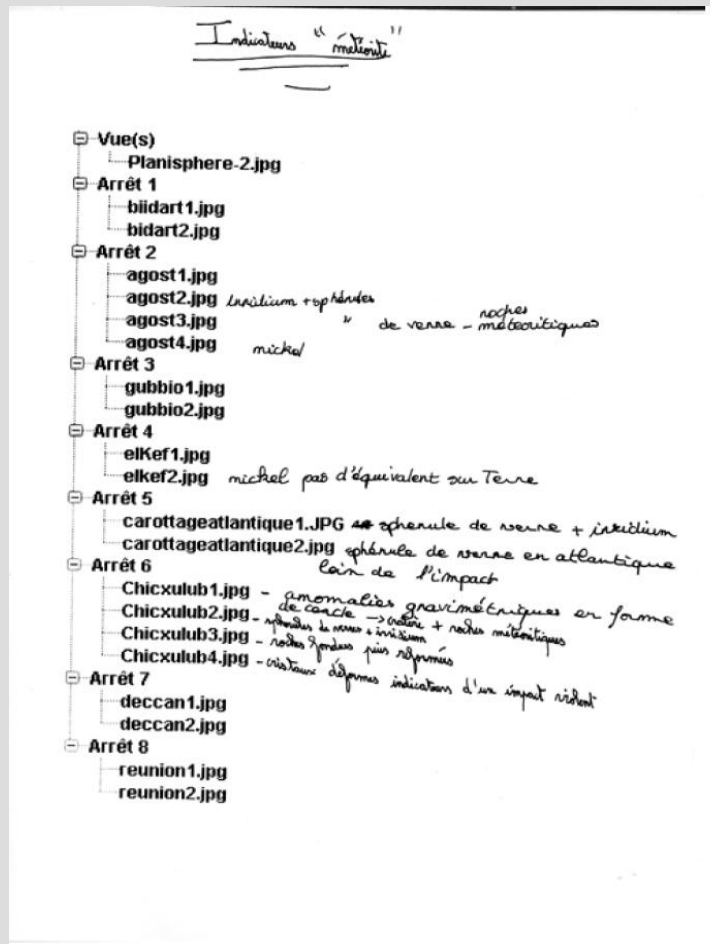 Indicateurs "météorite"
Vue(s)
Planisphere-2.jpg
Arrêt 1
biidart1.jpg
bidart2.jpg
Arrêt 2
agost1.jpg
agost2.jpg inridium + sphérules
agost3.jpg " de verre - roches météoritiques
agost4.jpg nickel
Arrêt 3
gubbio1.jpg
gubbio2.jpg
Arrêt 4
elKef1.jpg
elkef2.jpg nickel pas d'équivalent sur Terre
Arrêt 5
carottageatlantique1.JPG spherule de verre + inridium
carottageatlantique2.jpg sphérule de verre en atlantique
loin de l'impact
Arrêt 6
Chicxulub1.jpg - anomalies gravimétriques en forme
de cercle → cratère + roches météoritiques
Chicxulub2.jpg - sphérules de verres + irridium
Chicxulub3.jpg - roches fondues puis reformées
Chicxulub4.jpg - cristaux déformés indicateurs d'un impact violent
Arrêt 7
deccan1.jpg
deccan2.jpg
Arrêt 8
reunion1.jpg
reunion2.jpg